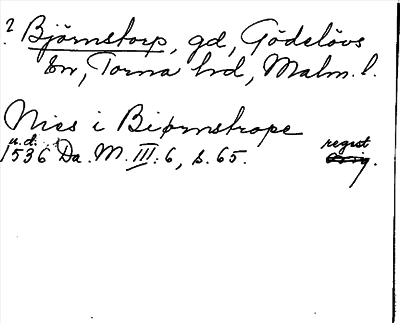 ? Björnstorp, gd, Gödelövs
sn, Torna hd, Malm. l.
Nies i Biørnstrope
u.d.
1536 Da. M. III: 6, s. 65. regist
Orig.